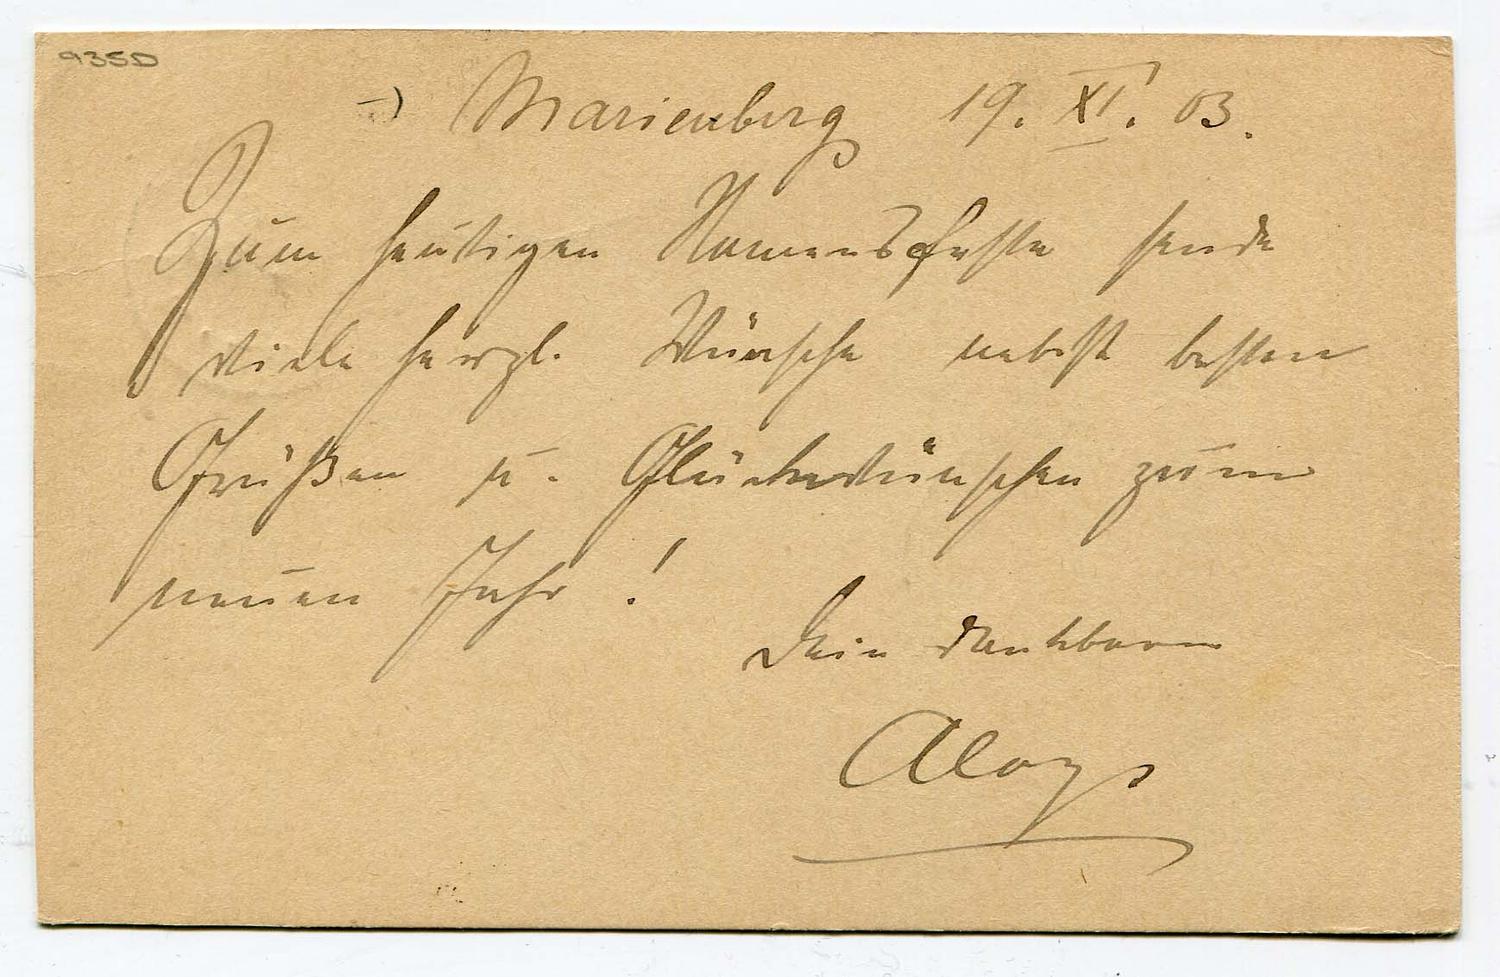 935D
Marienberg 19. XI. 03.
Zum heutigen Namensfeste sende
viele herzl. Wünsche nebst besten
Grüßen u. Glückwünschen zum
neuen Jahr!
Dein dankbarer
Aloys